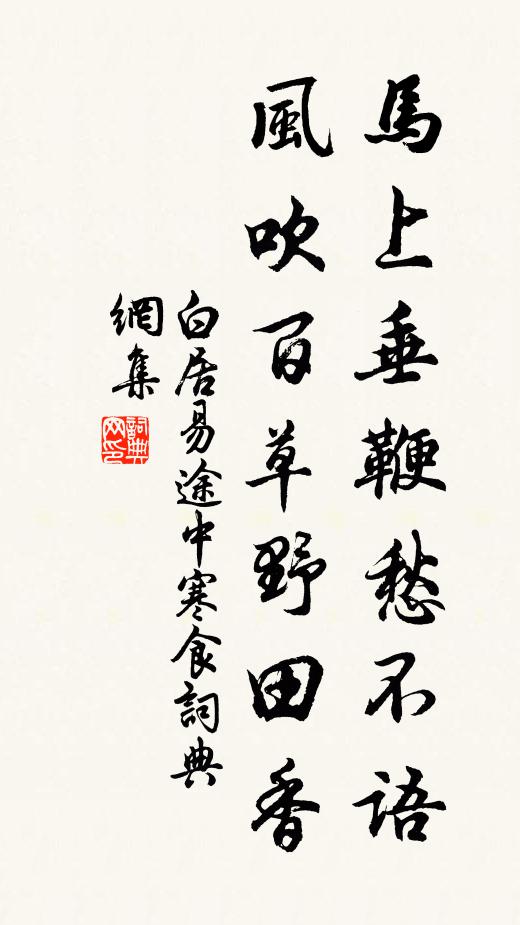 馬上垂鞭愁不語
風吹百草野田香
白居易途中寒食詞典
網集
詞典
网印